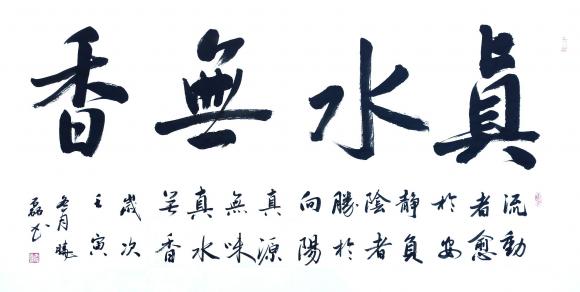 真水無香
流動
者愈
於安
靜負
陰者
勝於
向陽
真源
無味
真水
無香
歲次
壬寅
冬月曉
磊书